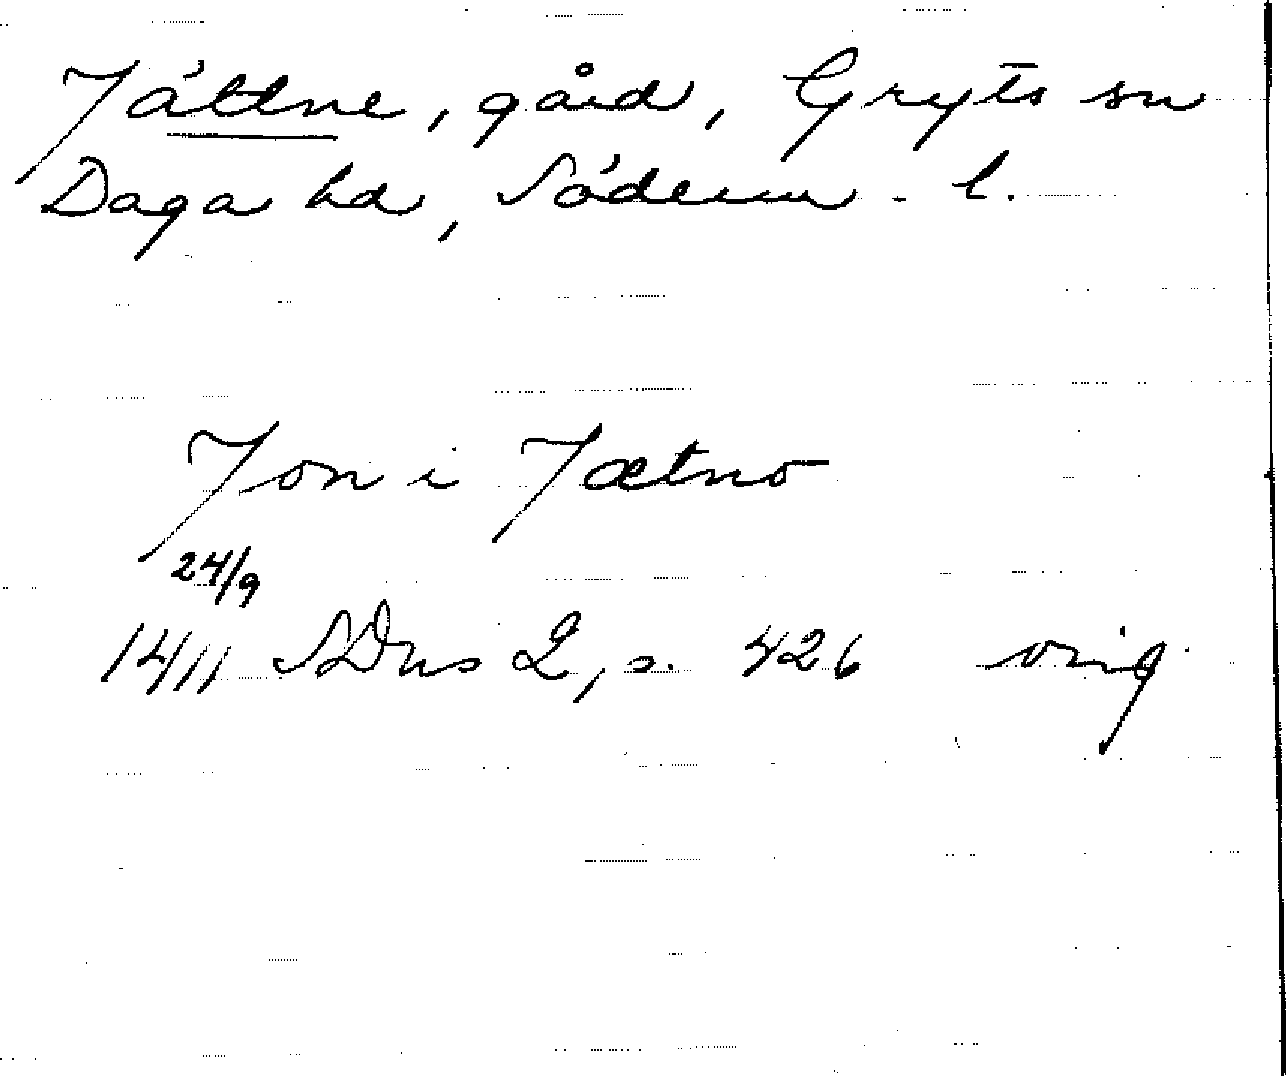 Jättne, gård, Gryts sn
Daga hd, Söderm. l.
Jon i Jætno
24/9
1411 SDns 2, s. 426 orig.